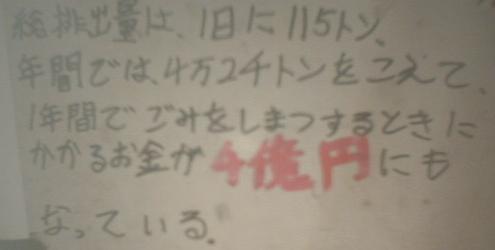 総排出量は、1日に115トン、
年間では、4万2千トンをこえて、
1年間でごみをしまつするときに
かかるお金が4億円にも
なっている。